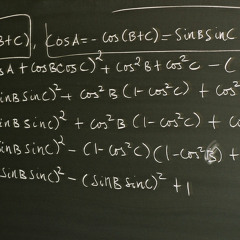 B+C), cosA = - cos(B+C) = sinBsinC
sA + cosBcosC)² + cos²B + cos²C - (
sinBsinC)² + cos²B (1 - cos²C) + cos²
sinBsinC)² + cos²B (1 - cos²C) + co
sinBsinC)² - (1 - cos²C)(1 - cos²B) +
sinBsinC)² - (sinBsinC)² + 1